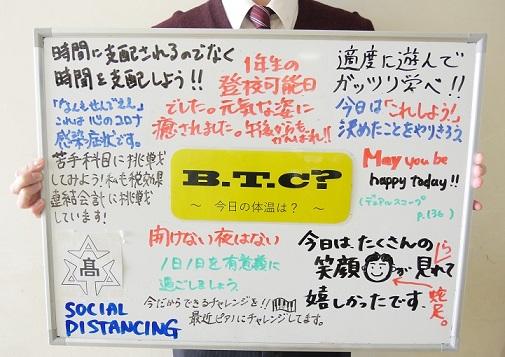 時間に支配されるのでなく
時間を支配しよう!!
1年生の
登校可能日
でした。元気な姿に
癒されました。午後からもがんばれ!!
適度に遊んで
ガッツリ学べ!!
今日は「これしよう!」
決めたことをやりきろう。
「なんもせんでええ」
これは心のコロナ
感染症状です。
苦手科目に挑戦
してみよう!私も税効果
連結会計に挑戦
しています!
B.T.C?
~ 今日の体温は? ~
May you be
happy today!!
(デュアルスコープ
p.136)
高
SOCIAL
DISTANCING
開けない夜はない
1日1日を有意義に
過ごしましょう。
今だからできるチャレンジを!!
最近ピアノにチャレンジしてます。
今日は、たくさんの
笑顔が見れて
ら
嬉しかったです
蛇足。